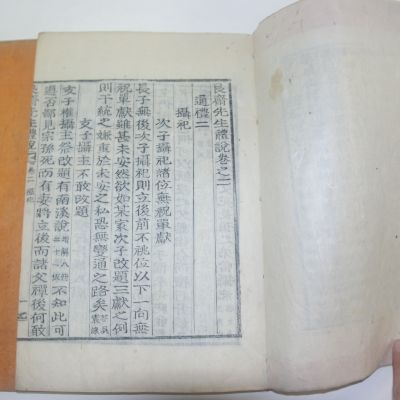 艮齋先生禮說卷之二
通禮二
攝祀
次子攝祀諸位無祝單獻
長子無後次子攝祀則立後前不祧位以下一向無
祝單獻雖甚未安然欲如某家次子改題三獻之例
則干統之嫌重於未安之私恐無變通之路矣
支子攝主不敢改題
支子權攝主祭改題有南溪說不知此可
適否鄙見宗孫死而有妻將立後而諸父禪後何敢